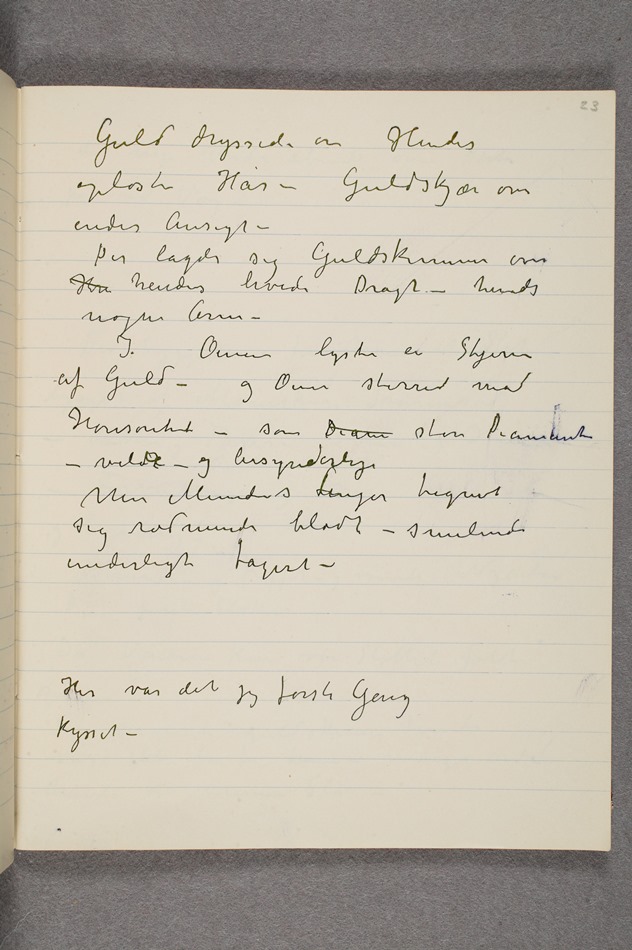 23
Guld dryssede om Hendes
opløste Hår – Guldskjær over
endes Ansigt –
Der lagde sig Guldskimmer over
Hen hendes hvide Dragt – hends
nøgne Arme –
I Øinene lyste en Stjerne
af Guld – og Øine stirred mod
Horisonten – som Diam store Diamanter
– vilde – og
Men Mundens Linjer
sig rødmende blødt – smilende
underligt fagert –
Her var det jeg første Gang
kysset –